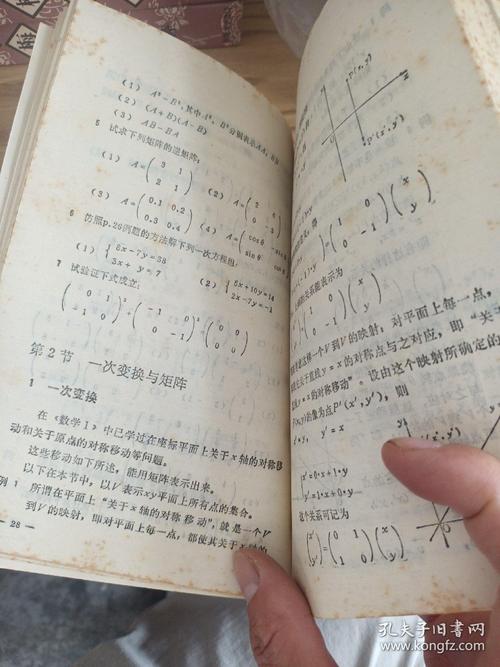 (1) A²－B²,其中A²、B²分别表示AA、BB
(2) (A+B)(A－B)
(3) AB－BA
5 试求下列矩阵的逆矩阵:
(1) A=(3 1
2 1)
(2) A=(2
0 －3)
(3) A=(0.1 0.2
0.3 0.4)
(4) A=(cosθ
sinθ
6 仿照p.26例题的方法解下列一次方程组:
(1) {6x－7y=38
3x+ y=7
(2) {5x+10y=14
2x－7y=－1
7 试验证下式成立:
(0 1
－1 0)²=(－1 0
0 －1)²(0 0
0 0)
第2节 一次变换与矩阵
1 一次变换
在《数学1》中已学过在座标平面上关于x轴的对称移
动和关于原点的对称移动等问题。
这些移动如下所述,能用矩阵表示出来。
以下在本节中,以V表示xy平面上所有点的集合。
例 1 所谓在平面上“关于x轴的对称移动”,就是一个V
到V的映射,即对平面上每一点,都使其关于x轴的
28 —
P(x,y)
P'(x',y')
=(1 0
0 －1)(x
y)
=－1·y
关系能表示为
(1 0
0 －1)(x
y)
这样一个V到V的映射:对平面上每一点,
关于直线y=x的对称点与之对应,即“关于
y=x的对称移动”。设由这个映射所确定的
P(x,y)的象为点P'(x',y'),则
x'=y, y'=x
{x'=0·x+1·y
y'=1·x+0·y
这个关系可记为
(x'
y')=(0 1
1 0)(x
y)
孔夫子旧书网
kongfz.com